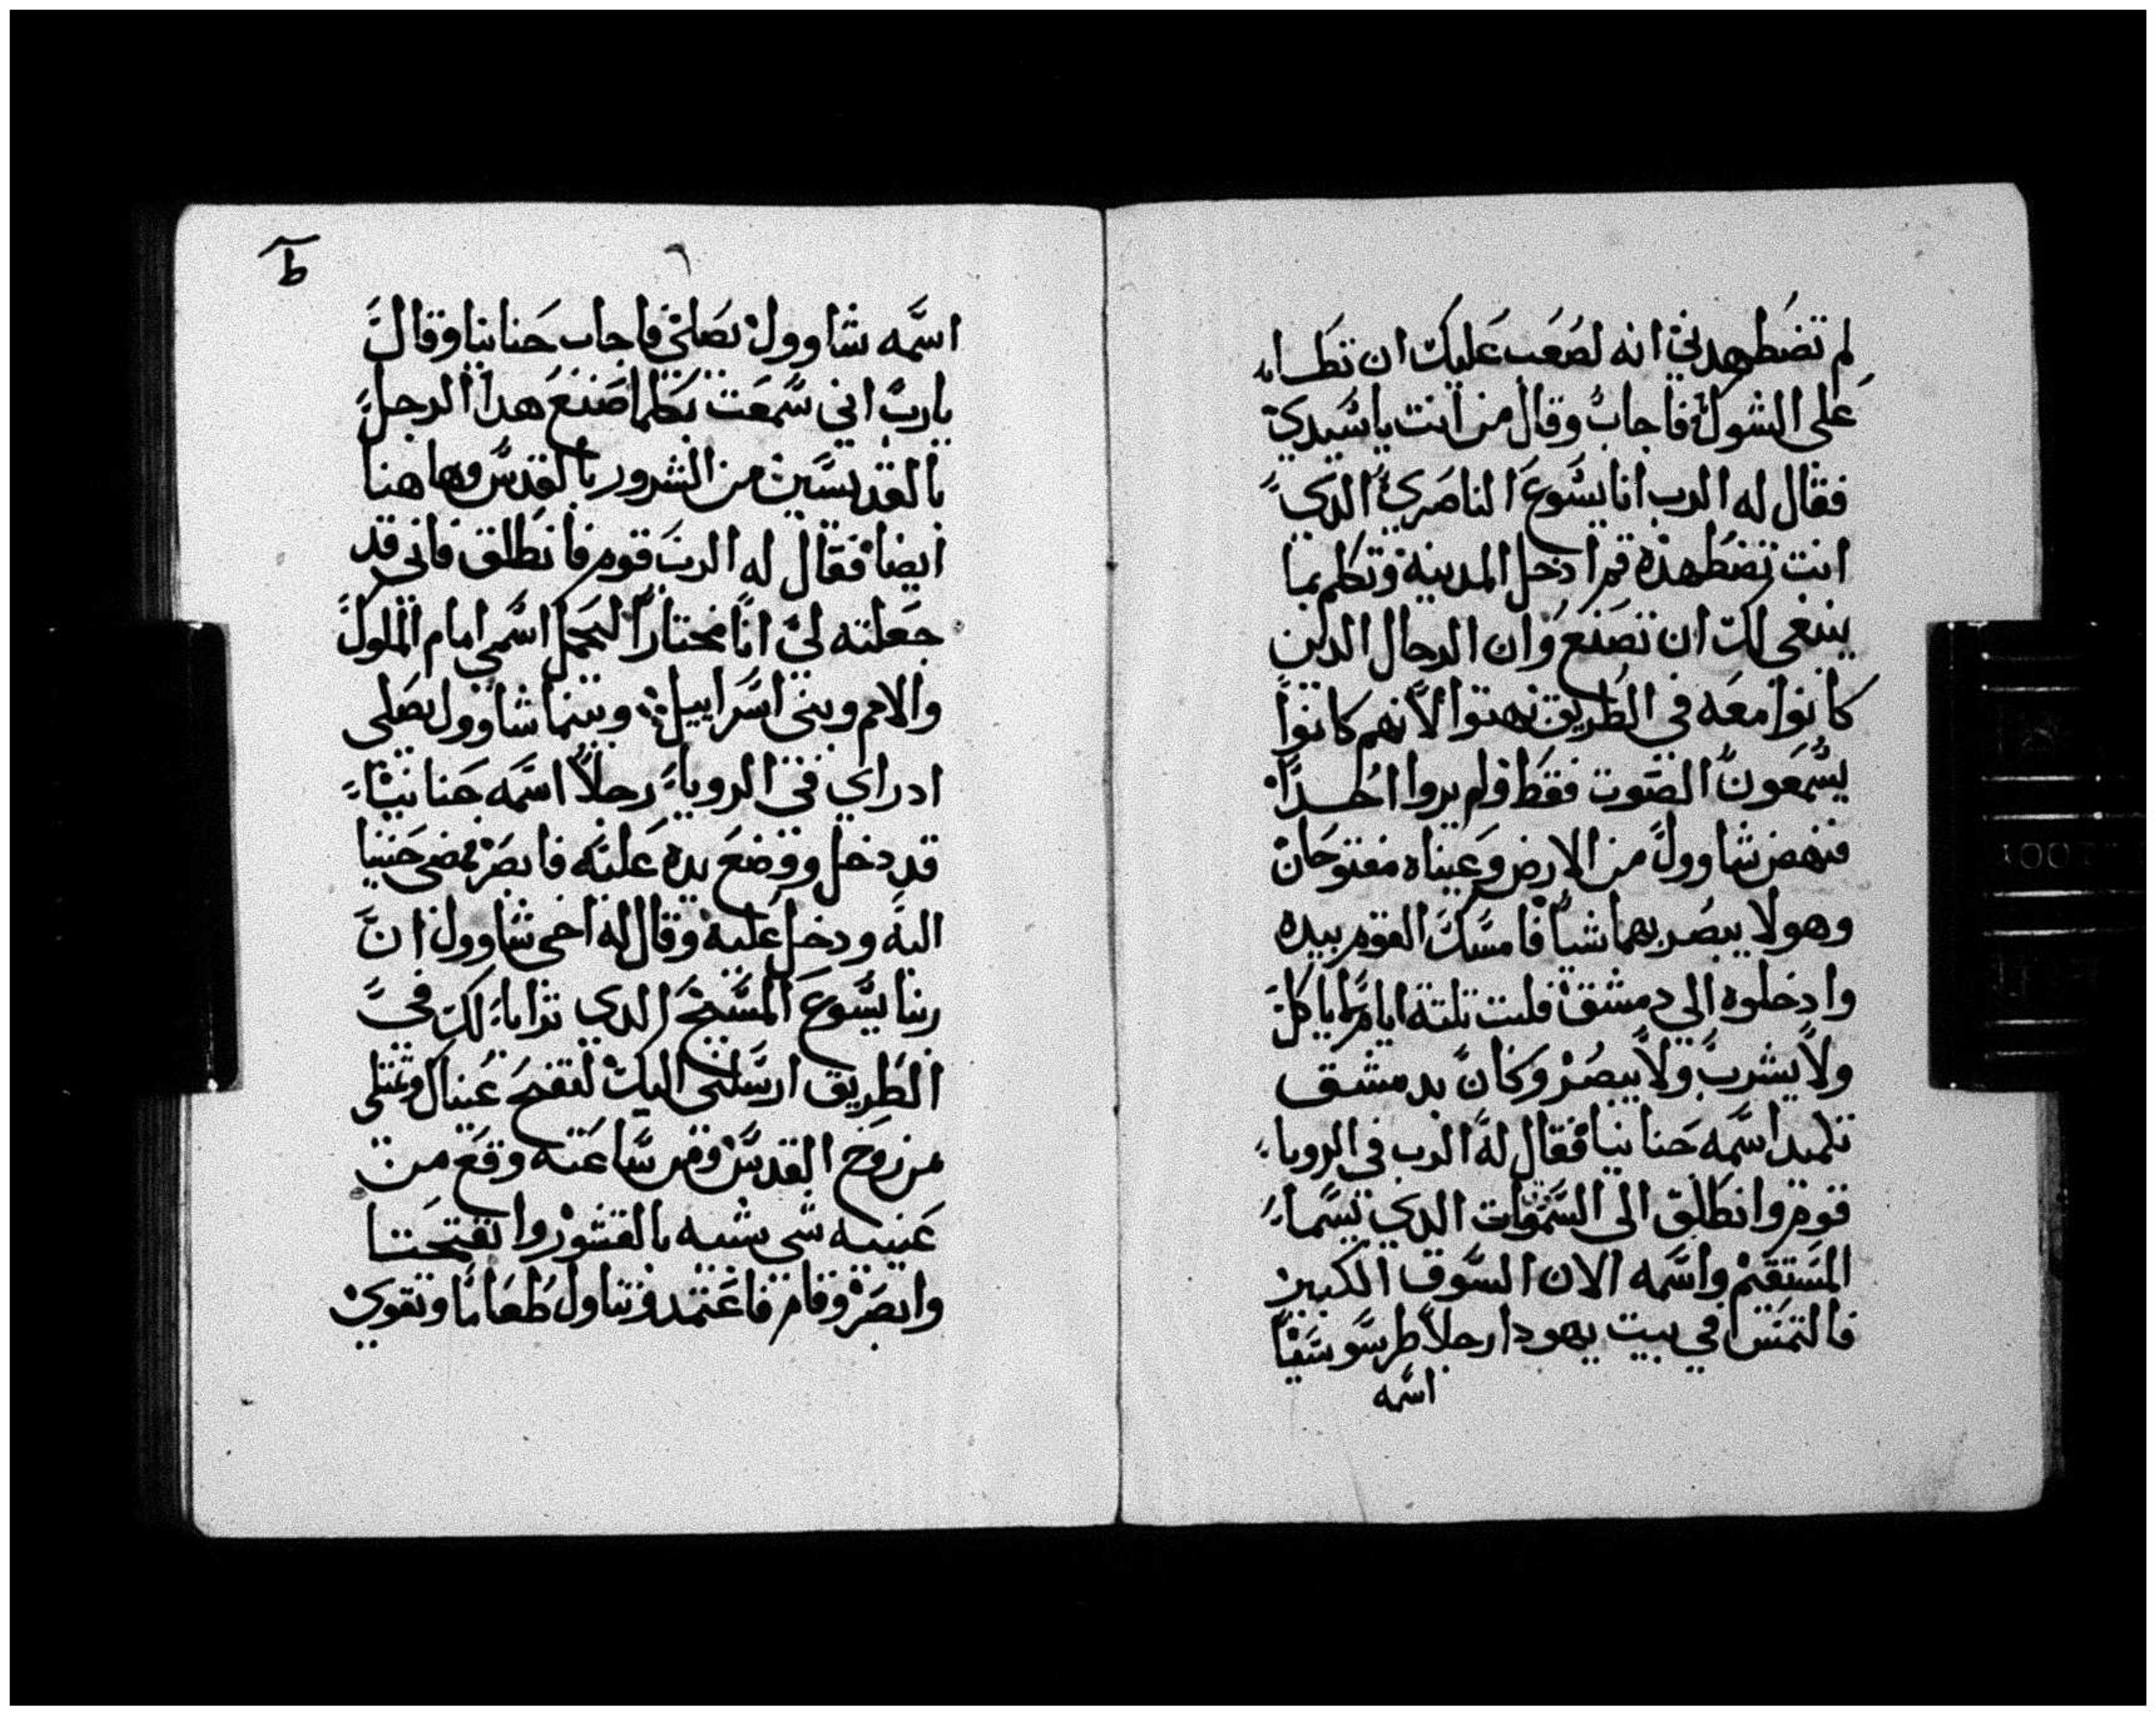 لم تضطهدني انه لصعب عليك ان تطا
على الشوك فاجاب وقال من انت يا سيدي
فقال له الرب انا يسوع الناصري الذي
انت تضطهده قم ادخل المدينه وتكلم بما
ينبغي لك ان تصنع وان الرجال الدين
كانوا معه في الطريق بهتوا لانهم كانوا
يسمعون الصوت فقط ولم يروا احدا
فنهض شاوول من الارض وعيناه مفتوحان
وهو لا يبصر بهما شيا فامسك القوم بيده
وادخلوه الي دمشق فلبت تلتة ايام لا ياكل
ولا يشرب ولا يبصر وكان بدمشق
تلميد اسمه حنانيا فقال له الرب في الرويا
قوم وانطلق الى السموات الدي تسما
المستقيم واسمه الان السوق الكبير
فالتمس في بيت يهودا رجلا طرسوسيا
اسمه
ط
اسمه شاوول يصلي فاجاب حنانيا وقال
يا رب اني سمعت بكلما صنع هدا الرجل
بالقديسين من الشرور بالقدس وها هنا
ايضا فقال له الرب قوم فانطلق فاني قد
جعلته لي انا مختارا ليحمل اسمي امام الملوك
والامم وبني اسراييل وبينما شاوول يصلى
اد راي في الرويا رجلا اسمه حنانيا
قد دخل ووضع يده عليه فابصر فمضى حننيا
اليه ودخل عليه وقال له اخي شاوول ان
ربنا يسوع المسيح الدي ترايا لك في
الطريق ارسلني اليك لتفتح عيناك وتمتلى
من روح القدس ومن ساعته وقع من
عينيه شي يشبه بالقشور وانفتحتا
وابصر وقام فاعتمد وتناول طعاما وتقوي